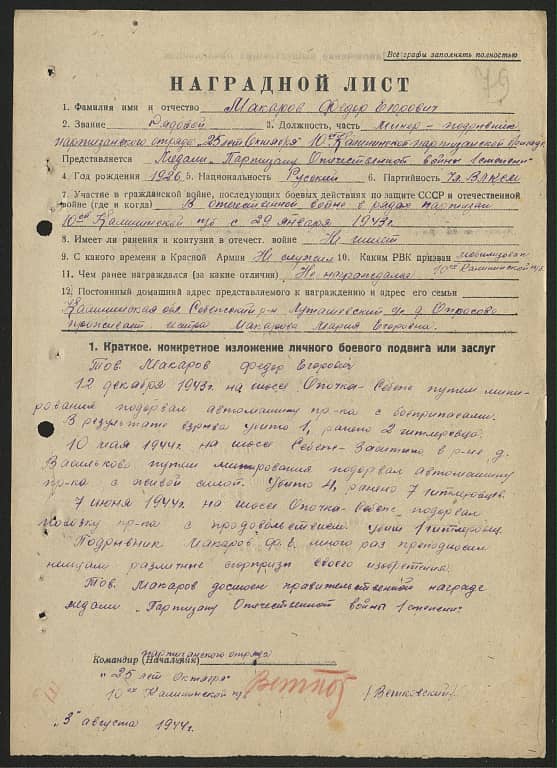 Все графы заполнять полностью
79
НАГРАДНОЙ ЛИСТ
1. Фамилия имя и отчество Макаров Федор Егорович
2. Звание Рядовой 3. Должность, часть минер-подрывник
партизанского отряда „25 лет Октября" 10ой Калининской партизанской бригады
Представляется к Медали „Партизану Отечественной войны 1 степени"
4. Год рождения 1926 5. Национальность Русский 6. Партийность чл. ВЛКСМ
7. Участие в гражданской войне, последующих боевых действиях по защите СССР и отечественной
войне (где и когда) В отечественной войне в рядах партизан
10ой Калининской п/б с 29 января 1943г.
8. Имеет ли ранения и контузии в отечест. войне Не имеет
9. С какого времени в Красной Армии Не служил 10. Каким РВК призван мобилизован
10ой Калининской п/б
11. Чем ранее награждался (за какие отличия) Не награждался
12. Постоянный домашний адрес представляемого к награждению и адрес его семьи
Калининская обл. Себежский р-н д.
проживает сестра Макарова Мария Егоровна.
1. Краткое, конкретное изложение личного боевого подвига или заслуг
Тов. Макаров Федор Егорович
12 декабря 1943г. на шоссе Опочка-Себеж путем мини-
рования подорвал автомашину пр-ка с боеприпасами.
В результате взрыва убито 1, ранено 2 гитлеровца.
10 мая 1944г. на шоссе Себеж-Заситино в р-не д.
Васильково путем минирования подорвал автомашину
пр-ка с живой силой. Убито 4, ранено 7 гитлеровцев.
7 июня 1944г. на шоссе Опочка-Себеж подорвал
повозку пр-ка с продовольствием убит 1 гитлеровец.
Подрывник Макаров Ф.Е. много раз преподносил
немцам различные сюрпризы своего изобретения.
Тов. Макаров достоен правительственной награде
медали „Партизану Отечественной войны 1 степени".
Командир (Начальник) партизанского отряда
„25 лет Октября"
10ой Калининской п/б (Ветковский)
„3" августа 1944г.